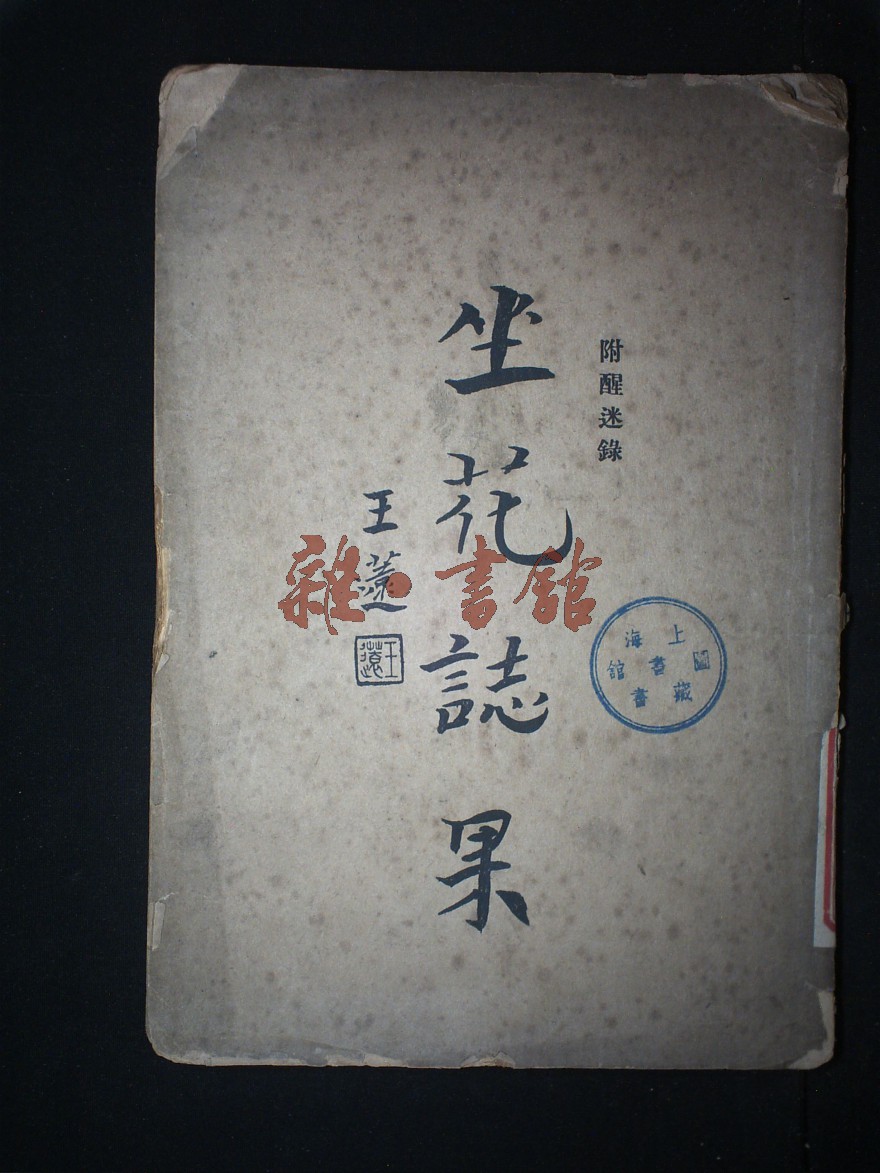 附醒迷錄
坐花誌果
王薳
王薳
雜·書館
上海圖書館藏書